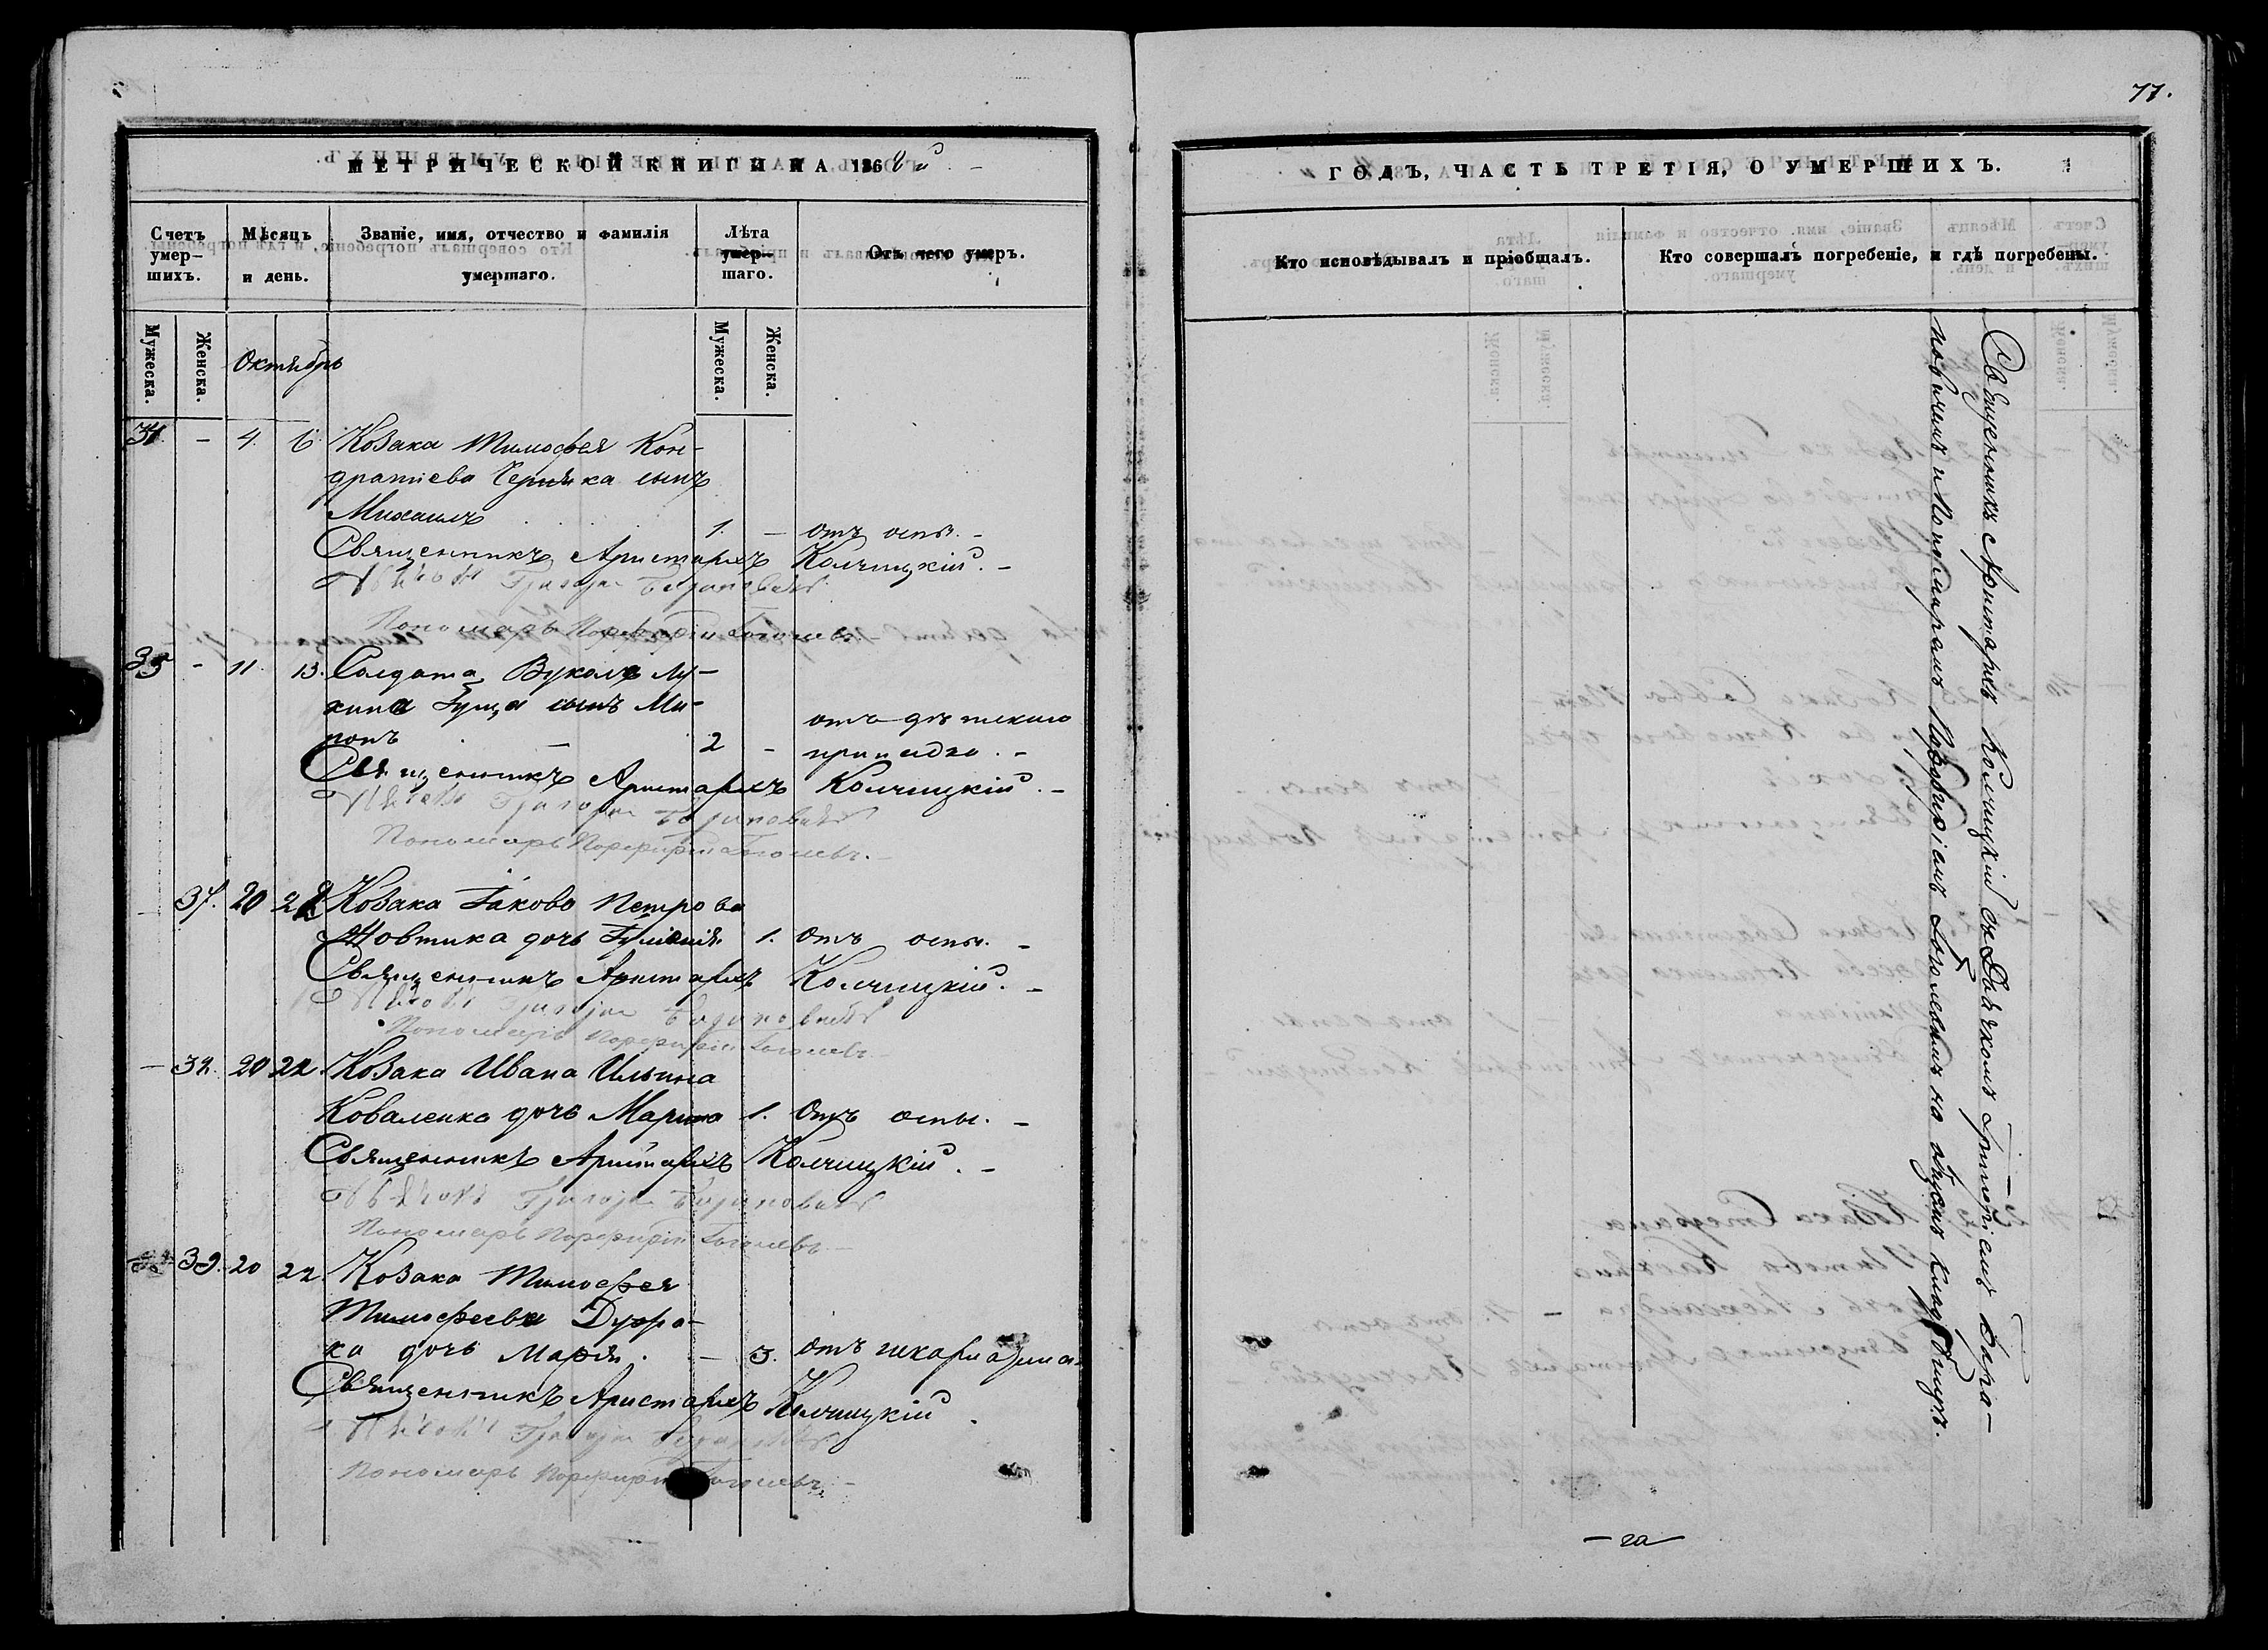 77.
МЕТРИЧЕСКОЙ КНИГИ НА 1868й
Счетъ умерших.
Мѣсяцъ и день.
Званіе, имя, отчество и фамилія умершаго.
Лѣта умершаго.
Отъ чего умеръ.
Мужеска.
Женска.
Октябрь
Мужеска.
Женска.
34 - 4. 6. Козака Тимофея Кон-
дратіева Черняка сынъ
Михаилъ 1. - отъ оспы. -
Священникъ Аристархъ Колчицкій. -
Дьячокъ Григорій
Пономарь Порфирій Гоголевъ.
35 - 11. 13. Солдата Вукола Лу-
кина Гуща сынъ Ми-
ронъ - 2 - отъ дѣтскаго
припадка. -
Священникъ Аристархъ Колчицкій. -
Дьячокъ Григорій
Пономарь Порфирій Гоголевъ. -
37. 20 22 Козака Іакова Петрова
Жовтика дочь 1. Отъ оспы. -
Священникъ Аристархъ Колчицкій. -
Дьячокъ Григорій
Пономарь Порфирій Гоголевъ. -
- 20 22 Козака Ивана Ильина
Коваленка дочь Марина 1. Отъ оспы. -
Священникъ Аристархъ Колчицкій. -
Дьячокъ Григорій
Пономарь Порфирій Гоголевъ. -
39. 20 22. Козака Тимофея
Тимофеева
ка дочь Марія. - 3. отъ шкарлатина
Священникъ Аристархъ Колчицкій.
Дьячокъ Григорій
Пономарь Порфирій Гоголевъ. -
ГОДЪ, ЧАСТЬ ТРЕТІЯ, О УМЕРШИХЪ.
Кто исповѣдывалъ и пріобщалъ.
Кто совершалъ погребеніе, и гдѣ погребены.
Священникъ Аристархъ Колчицкій съ Дьячкомъ Григоріемъ
и Пономаремъ Порфиріемъ Гоголевымъ на кладбищѣ.